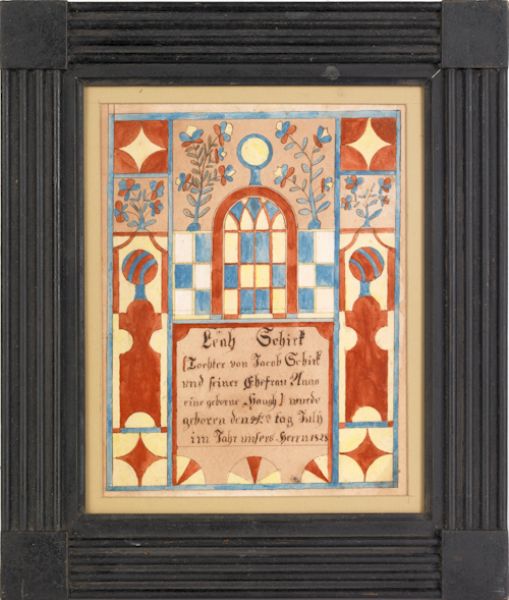 Leah Schirk
(Tochter von Jacob Schirk
und seiner Ehefrau Anna
eine geborne Haugh) wurde
geboren den tag July
im Jahr unsers Herrn 1828